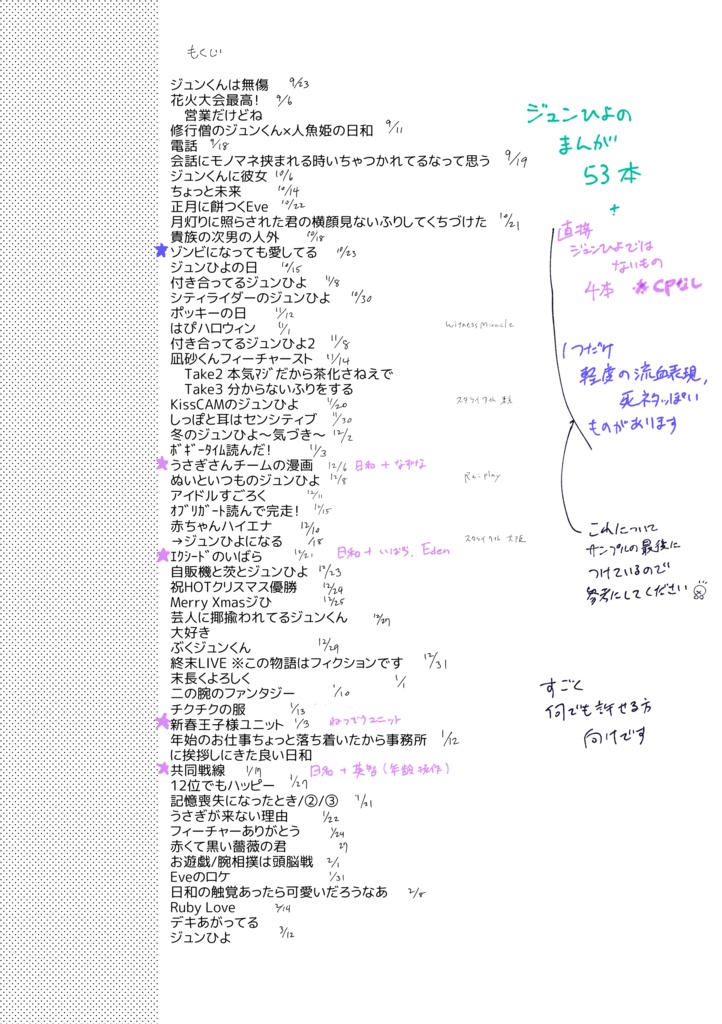 もくじ
ジュンくんは無傷 9/23
花火大会最高! 9/6
営業だけどね
修行僧のジュンくん×人魚姫の日和 9/11
電話 9/18
会話にモノマネ挟まれる時いちゃつかれてるなって思う 9/19
ジュンくんに彼女 10/6
ちょっと未来 10/14
正月に餅つくEve 10/22
月灯りに照らされた君の横顔見ないふりしてくちづけた 10/21
貴族の次男の人外 10/18
ゾンビになっても愛してる 10/23
ジュンひよの日 10/15
付き合ってるジュンひよ 11/8
シティライダーのジュンひよ 10/30
ポッキーの日 11/12
はぴハロウィン 11/1 Witness miracle
付き合ってるジュンひよ2 11/8
凪砂くんフィーチャースト 11/14
Take2 本気マジだから茶化さねえで
Take3 分からないふりをする
KissCAMのジュンひよ 11/20
しっぽと耳はセンシティブ 11/30
冬のジュンひよ〜気づき〜 12/2
ボギータイム読んだ! 11/3
うさぎさんチームの漫画 12/6 日和+なずな
ぬいといつものジュンひよ 12/8 Re:play
アイドルすごろく 12/11
オブリガート読んで完走! 12/15
赤ちゃんハイエナ 12/10
→ジュンひよになる スタライフル 大阪
エクシードのいばら 12/21 日和+いばら, Eden
自販機と茨とジュンひよ 12/23
祝HOTクリスマス優勝 12/24
Merry Xmasジひ 12/25
芸人に揶揄われてるジュンくん 12/27
大好き
ぶくジュンくん 12/29
終末LIVE ※この物語はフィクションです 12/31
末長くよろしく 1/1
二の腕のファンタジー 1/10
チクチクの服 1/13
新春王子様ユニット 1/3 ねつぞうユニット
年始のお仕事ちょっと落ち着いたから事務所 1/12
に挨拶しにきた良い日和
共同戦線 1/19 日和+英智(年齢操作)
12位でもハッピー 1/27
記憶喪失になったとき/②/③ 1/21
うさぎが来ない理由 1/22
フィーチャーありがとう 1/24
赤くて黒い薔薇の君 27
お遊戯/腕相撲は頭脳戦 2/1
Eveのロケ 1/31
日和の触覚あったら可愛いだろうなあ 2/8
Ruby Love 2/14
デキあがってる
ジュンひよ 3/12
ジュンひよの
まんが
53本
+
直接
ジュンひよでは
ないもの
4本 ※CPなし
1つだけ
軽度の流血表現,
死ネタっぽい
ものがあります
これについて
サンプルの最後に
つけているので
参考にしてください
すごく
何でも許せる方
向けです